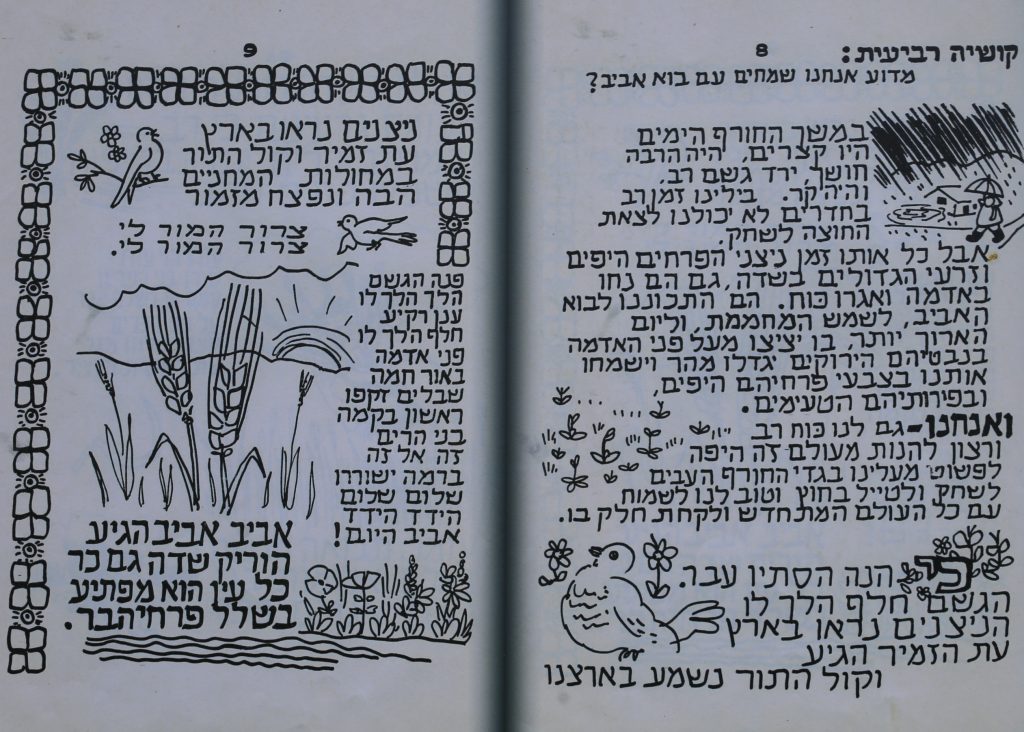 8
קושיה רביעית:
מדוע אנחנו שמחים עם בוא אביב?
במשך החורף הימים
היו קצרים, היה הרבה
חושך, ירד גשם רב,
והיה קר. בילינו זמן רב
בחדרים לא יכולנו לצאת
החוצה לשחק.
אבל כל אותו זמן ניצני הפרחים היפים
וזרעי הגדולים בשדה, גם הם נחו
באדמה ואגרו כוח. הם התכוננו לבוא
האביב, לשמש המחממת, וליום
הארוך יותר, בו יציצו מעל פני האדמה
בנבטיהם הירוקים יגדלו מהר וישמחו
אותנו בצבעי פרחיהם היפים,
ובפירותיהם הטעימים.
ואנחנו- גם לנו כוח רב
ורצון להנות מעולם זה היפה
לפשוט מעלינו בגדי החורף העבים
לשחק ולטייל בחוץ וטוב לנו לשמוח
עם כל העולם המתחדש ולקחת חלק בו.
כי הנה הסתיו עבר.
הגשם חלף הלך לו
הניצנים נראו בארץ
עת הזמיר הגיע
וקול התור נשמע בארצנו
9
ניצנים נראו בארץ
עת זמיר וקול התור
במחולות המחניים
הבה ונפצח מזמור
צרור המור לי
צרור המור לי.
פנה הגשם
הלך הלך לו
ענן רקיע
חלף הלך לו
פני אדמה
באור חמה
שבלים זקפו
ראשון בקמה
בני הרים
זה אל זה
ברמה ישוררו
שלום שלום
הידד הידד
אביב היום!
אביב אביב הגיע
הוריק שדה גם כר
כל עין הוא מפתיע
בשלל פרחי הבר.